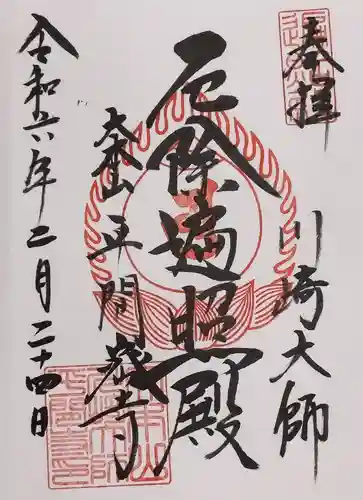 奉拝
川崎大師
厄除遍照殿
大本山 平間寺
令和六年二月二十四日